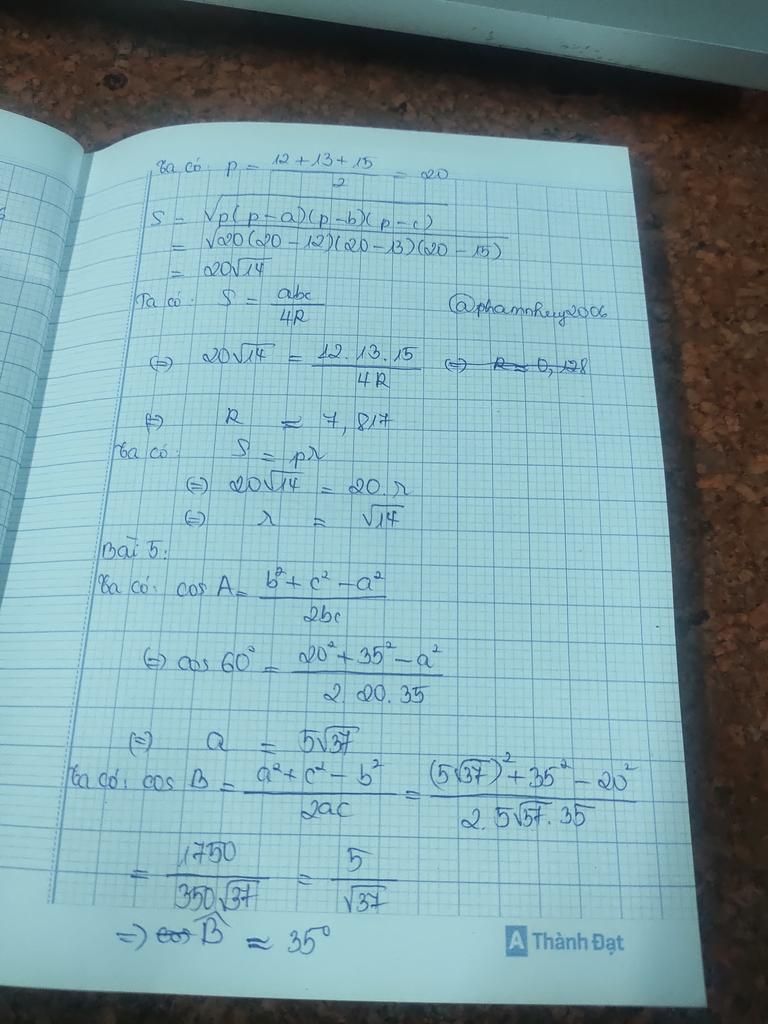 Ta có: p = (12 + 13 + 15)/2 = 20
S = √(p(p - a)(p - b)(p - c))
= √(20(20 - 12)(20 - 13)(20 - 15))
= 20√14
Ta có: S = abc/4R
@phamnhuy2006
(=) 20√14 = (12.13.15)/4R (=) R ≈ 0,128
(=) R ≈ 7,817
Ta có: S = pr
(=) 20√14 = 20.r
(=) r = √14
Bài 5:
Ta có: cos A = (b² + c² - a²)/2bc
(=) cos 60° = (20² + 35² - a²)/(2.20.35)
(=) a = 5√37
Ta có: cos B = (a² + c² - b²)/2ac = ((5√37)² + 35² - 20²)/(2.5√37.35)
= 1750/(350√37) = 5/√37
=) cos B̂ ≈ 35°
A Thành Đạt